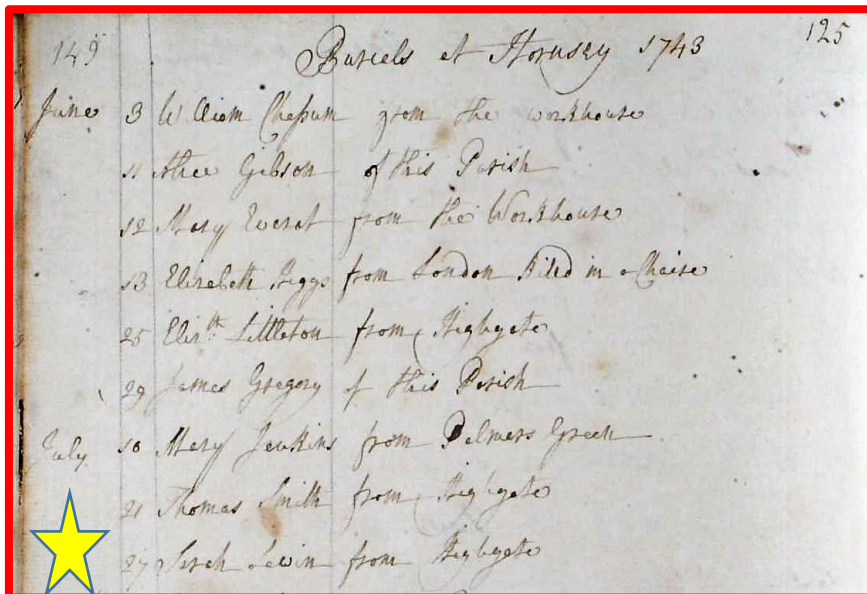 149 Buriels at Hornsey 1743 125
June 3 William Chessum from the workhouse
11 Alice Gibson of this Parish
12 Mary Everat from the Workhouse
13 Elizabeth Higgs from London Kiled in a Chaise
25 Elizth Littleton from Highgate
29 James Gregory of this Parish
July 10 Mary Jenkins from Palmers Green
21 Thomas Smith from Highgate
27 Sarah Lewin from Highgate